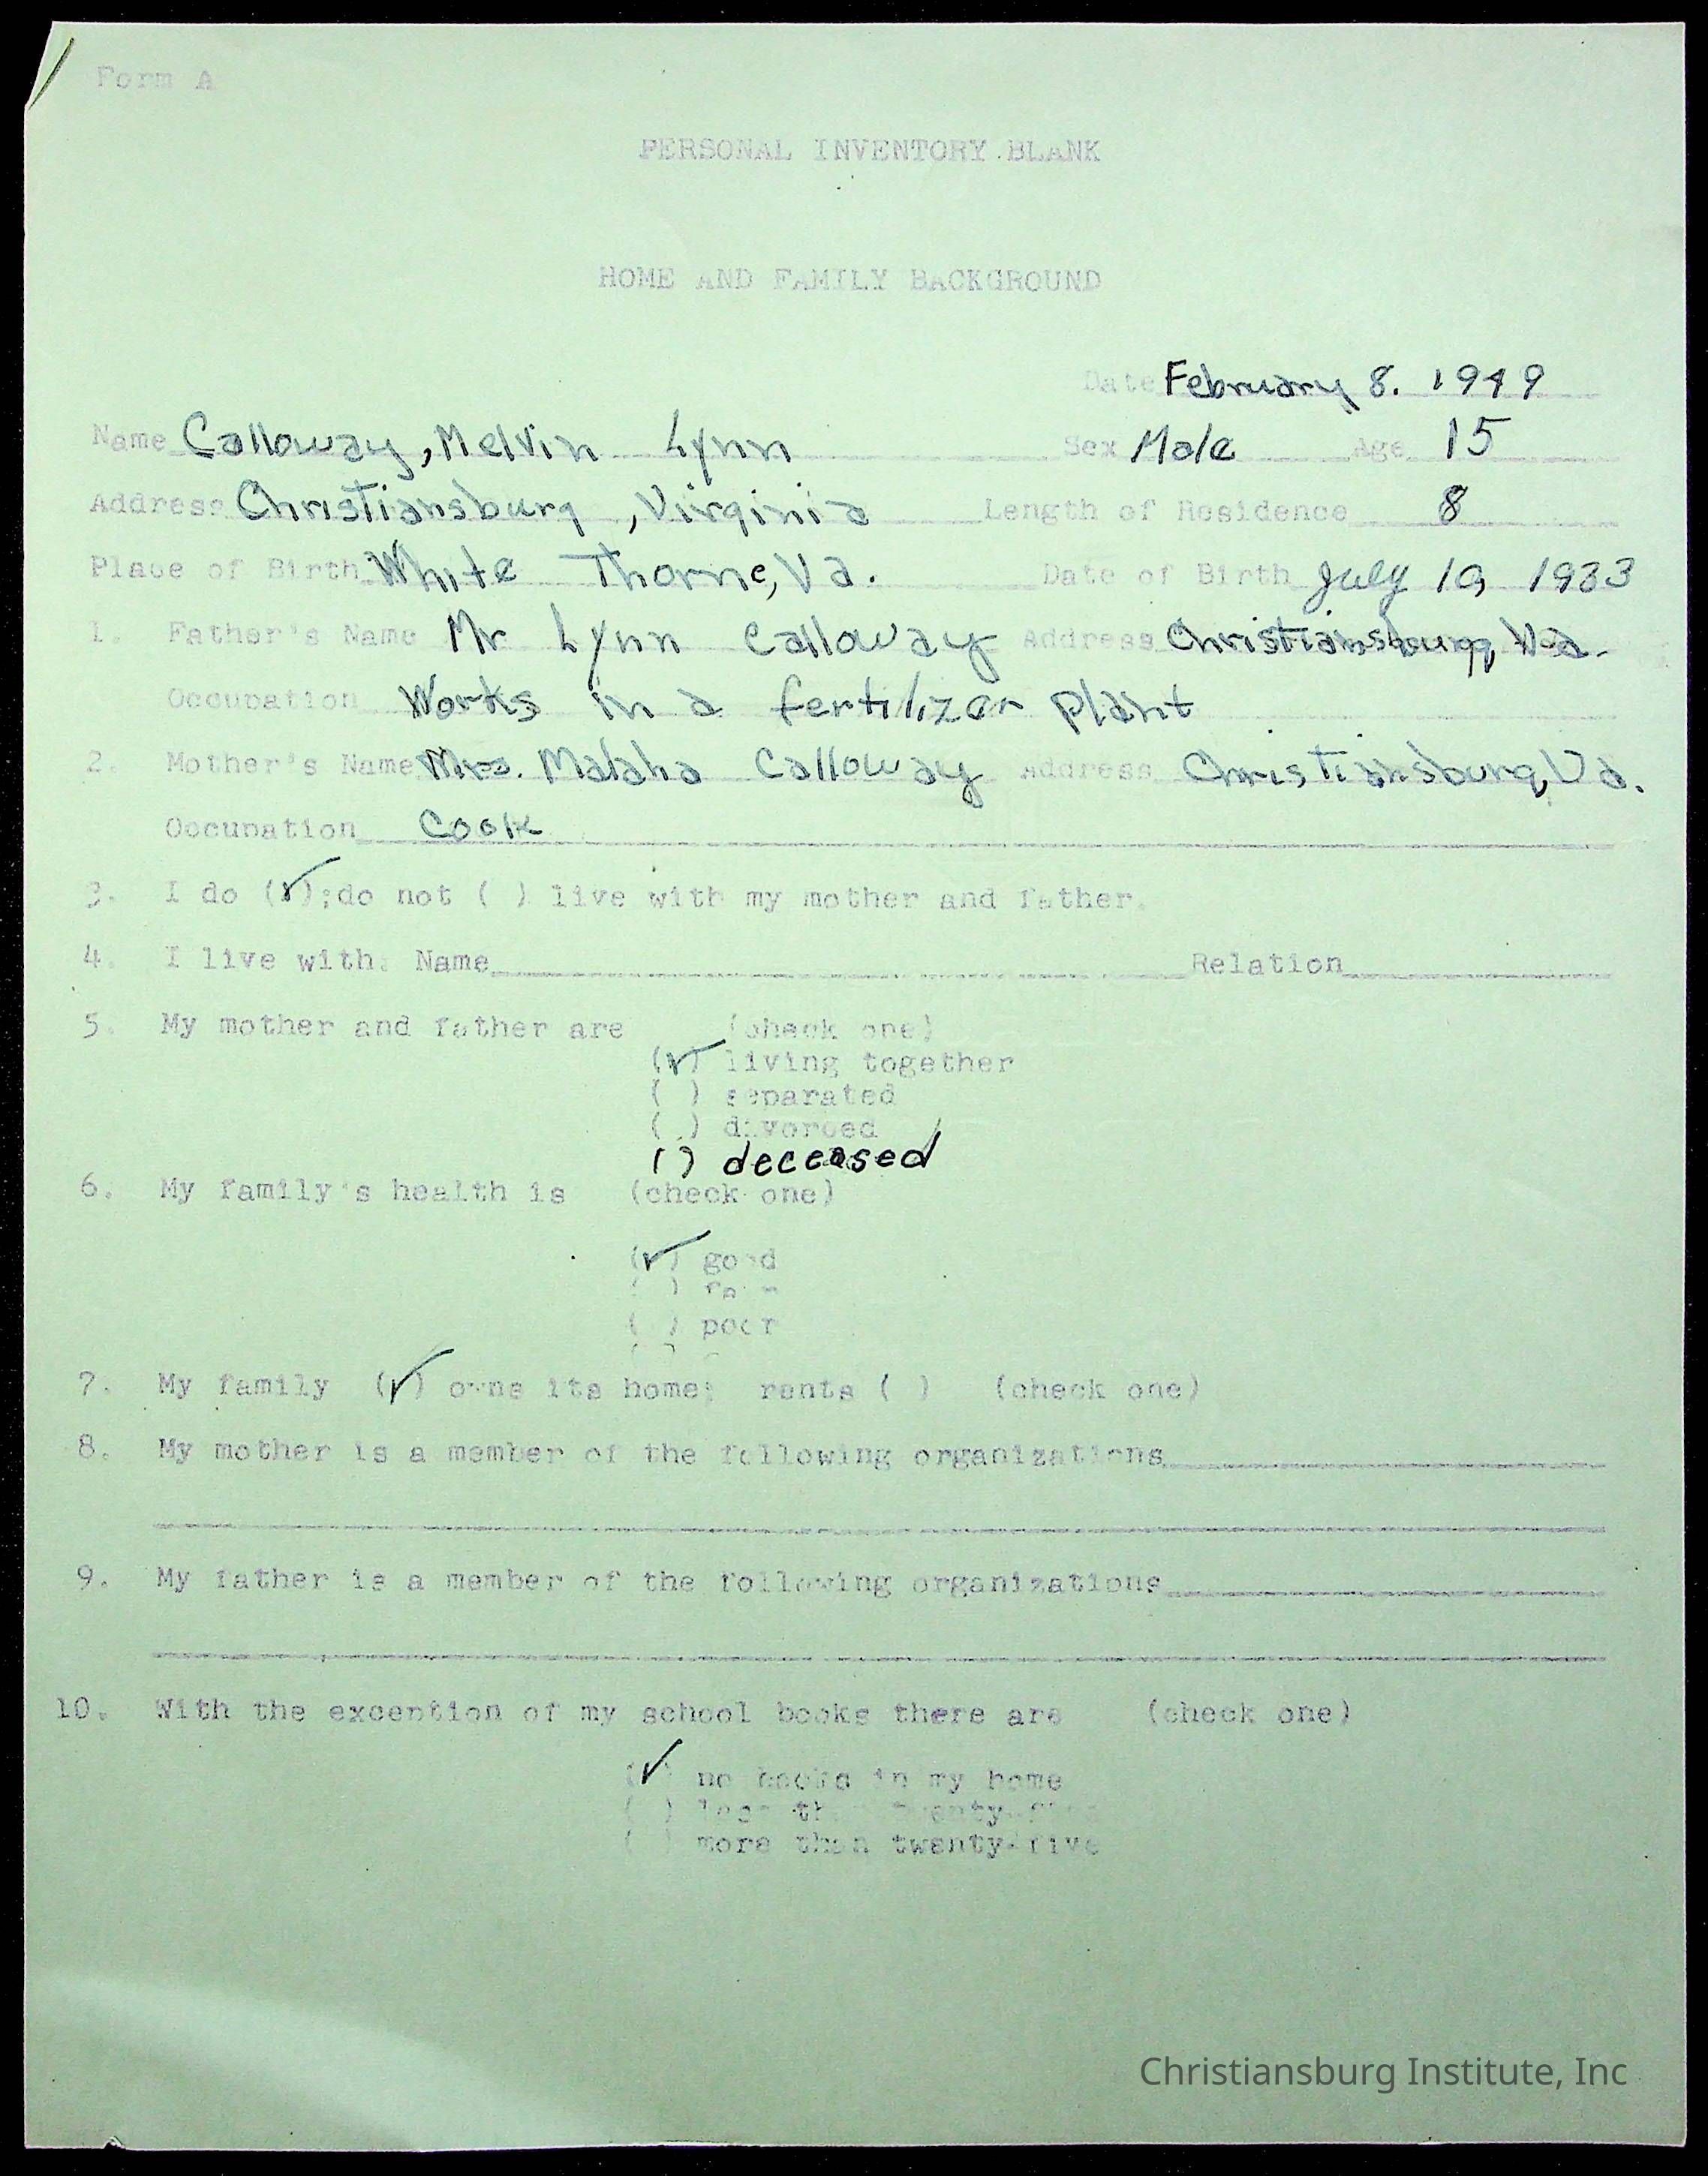 Form A
PERSONAL INVENTORY BLANK
HOME AND FAMILY BACKGROUND
Date February 8. 1949
Name Calloway, Melvin Lynn Sex Male Age 15
Address Christiansburg, Virginia Length of Residence 8
Place of Birth White Thorne, Va. Date of Birth July 10, 1933
1. Father's Name Mr Lynn Calloway Address Christiansburg, Va.
Occupation Works in a fertilizer plant
2. Mother's Name Mrs. Malaha Calloway Address Christiansburg, Va.
Occupation Cook
3. I do (✓); do not ( ) live with my mother and father.
4. I live with: Name Relation
5. My mother and father are (check one)
(✓) living together
( ) separated
( ) divorced
( ) deceased
6. My family's health is (check one)
(✓) good
( ) fair
( ) poor
7. My family (✓) owns its home; rents ( ) (check one)
8. My mother is a member of the following organizations
9. My father is a member of the following organizations
10. With the exception of my school books there are (check one)
(✓) no books in my home
( ) less than twenty-five
( ) more than twenty-five
Christiansburg Institute, Inc